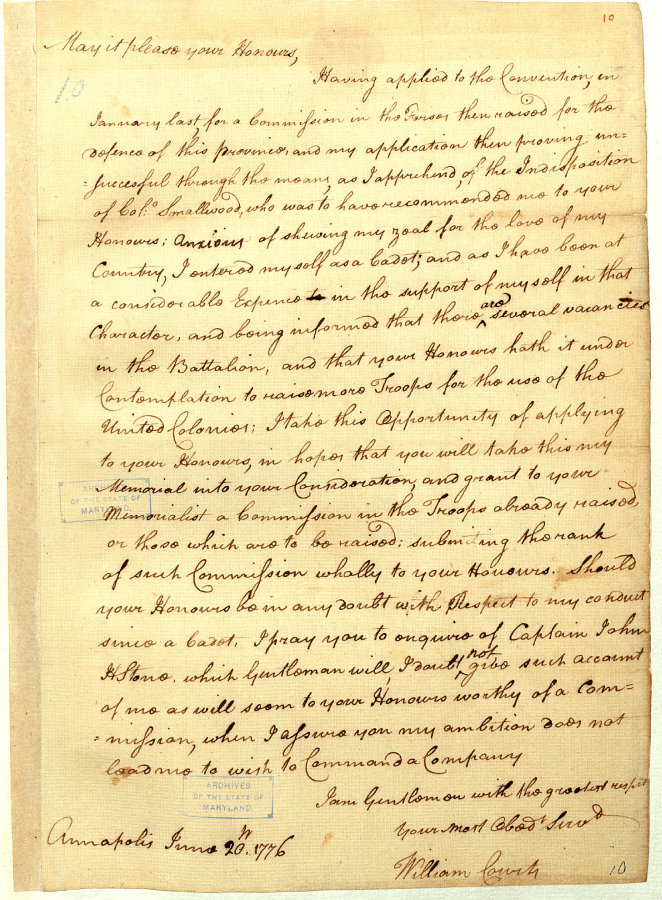 10
May it please your Honours,
10
Having applied to the Convention, in
January last for a Commission in the Forces then raised for the
defence of this province, and my application then proving un=
=successful through the means, as I apprehend, of the Indisposition
of Col.o Smallwood, who was to have recommended me to your
Honours; Anxious of shewing my zeal for the love of my
Country, I entered myself as a Cadet; and as I have been at
a considerable Expence to in the support of myself in that
Character, and being informed that there are several vacancies
in the Battalion, and that your Honours hath it under
Contemplation to raise more Troops for the use of the
United Colonies; I take this Opportunity of applying
to your Honours, in hopes that you will take this my
Memorial into your Consideration, and grant to your
Memorialist a Commission in the Troops already raised,
or those which are to be raised; submitting the rank
of such Commission whally to your Honours. Should
your Honours be in any doubt with Respect to my conduct
since a Cadet, I pray you to enquire of Captain John
H Stone, which Gentleman will, I doubt not give such account
of me as will seem to your Honours worthy of a Com=
=mission, when I assure you my ambition does not
lead me to wish to Command a Company
I am Gentlemen with the greatest respect
Your most Obed.t Serv.d
Annapolis June 20. 1776
William Courts
10
ARCHIVES
OF THE STATE OF
MARYLAND.
ARCHIVES
OF THE STATE OF
MARYLAND